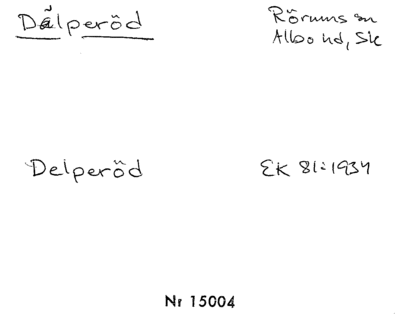 Dålperöd
Rörums sn
Albo hd, Sk
Delperöd
EK 81:1934
Nr 15004